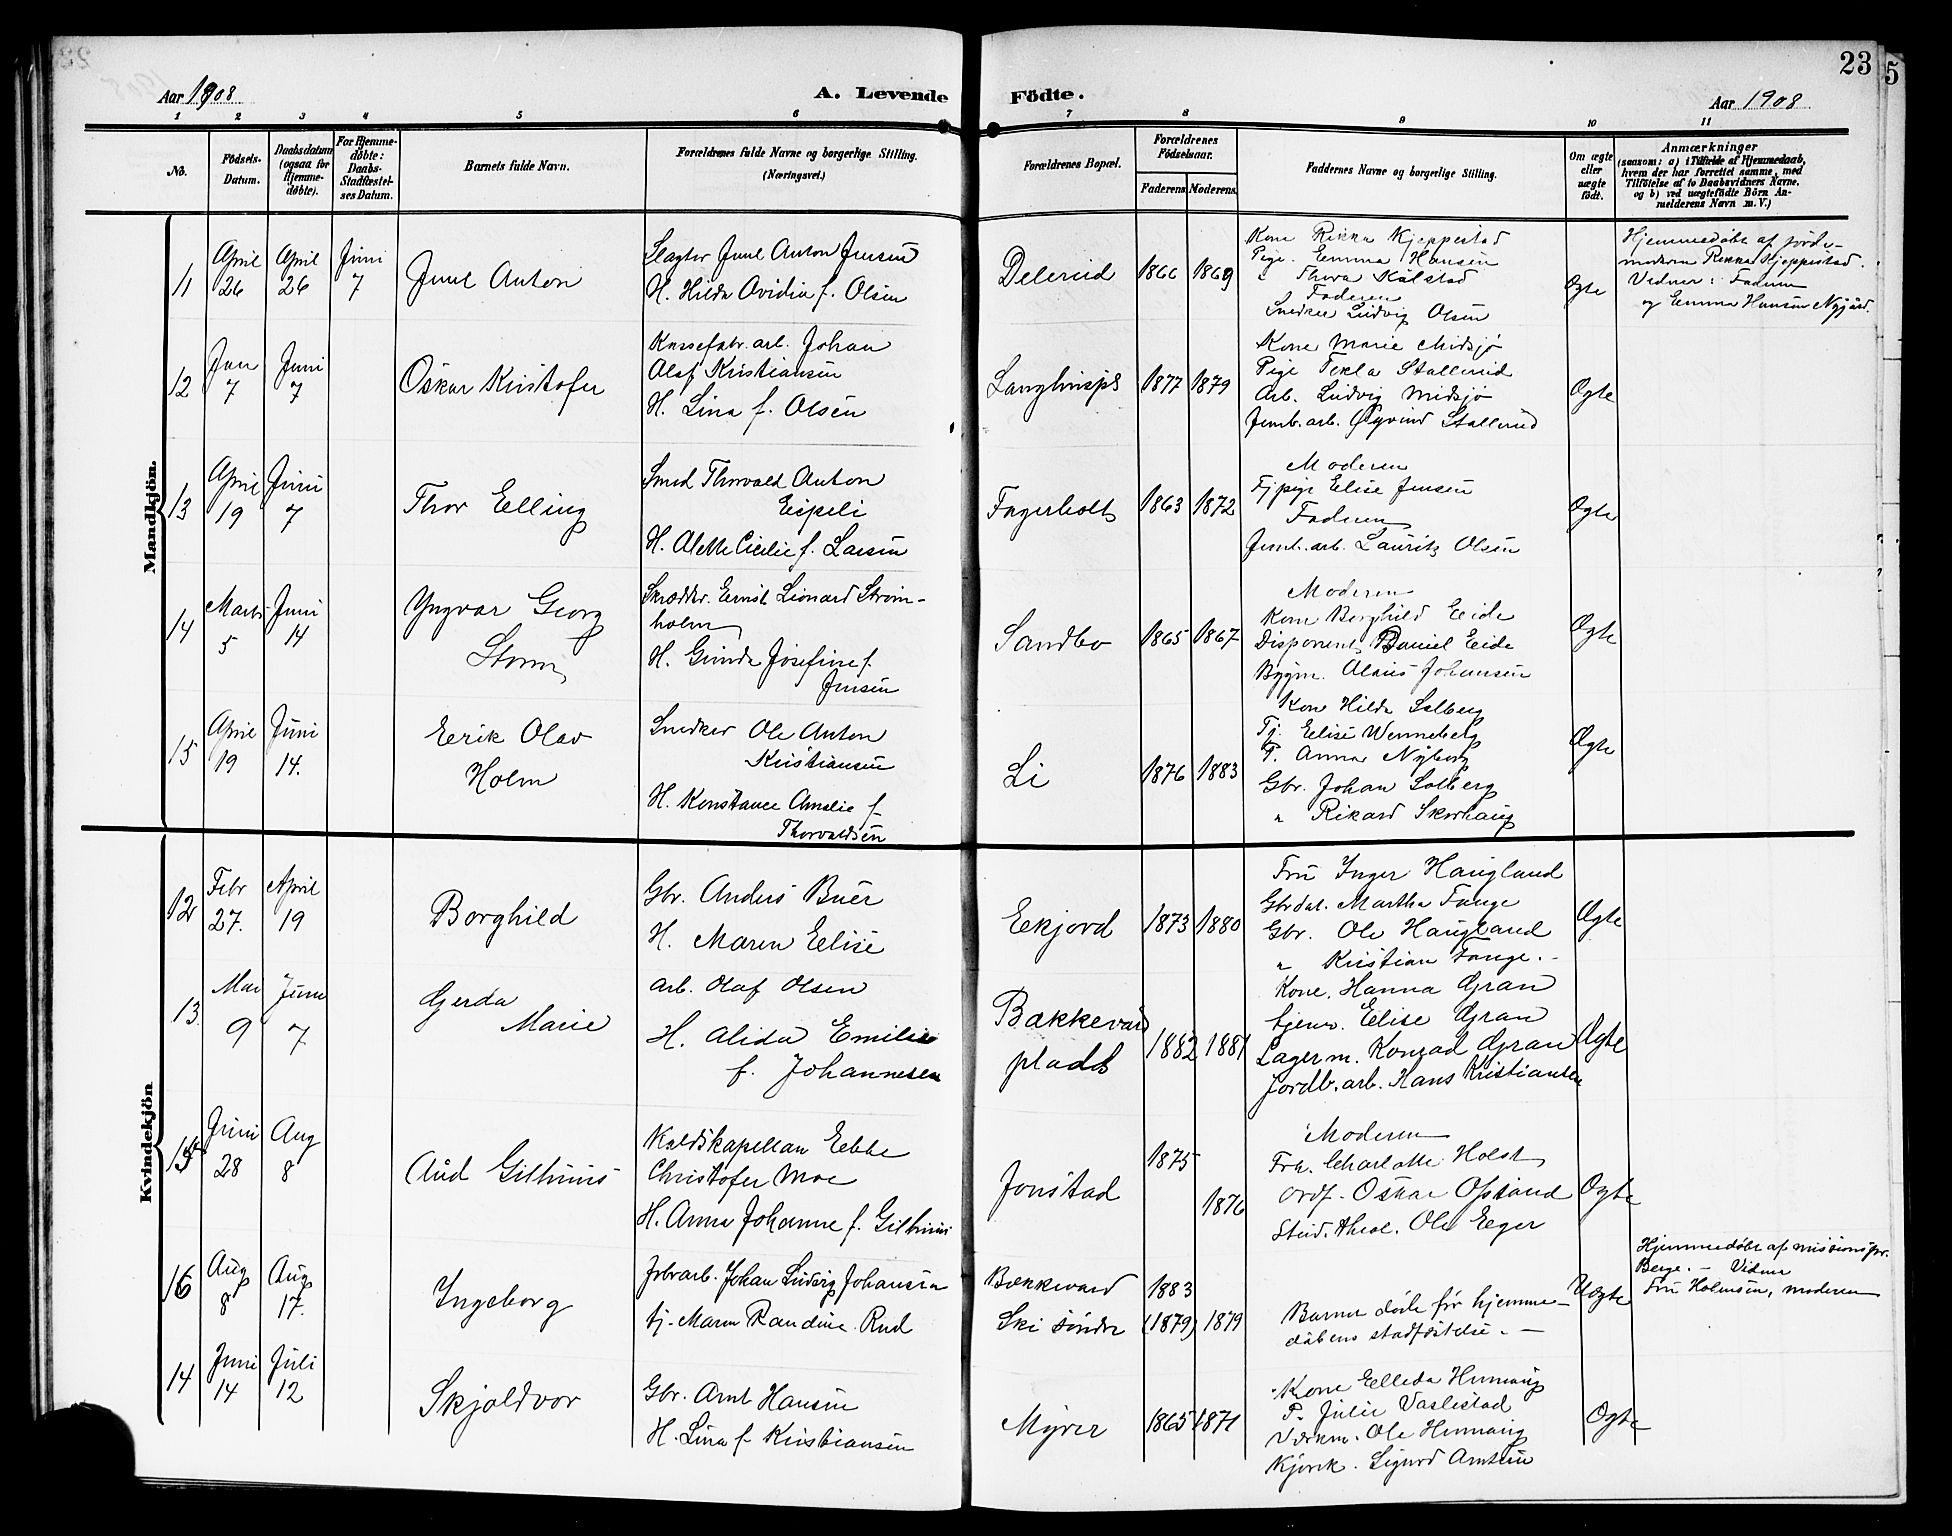 23
Aar 1908
A. Levende Födte.
Aar 1908
1 2 3 4 5 6 7 8 9 10 11
No.
Födsels-Datum.
Daabsdatum (ogsaa for Hjemme-döbte).
For Hjemme-döbte: Daabs-Stadfæstel-ses Datum.
Barnets fulde Navn.
Forældrenes fulde Navne og borgerlige Stilling. (Næringsvei.)
Forældrenes Bopæl.
Forældrenes Födselsaar.
Faderens Moderens.
Faddernes Navne og borgerlige Stilling.
Om ægte eller uægte födt.
Anmærkninger
(saasom: a) i Tilfælde af Hjemmedaab,
hvem der har forrettet samme, med
Tilföielse af to Daabsvidners Navne,
og b) ved uægtefödte Börn An-
melderens Navn m. V.)
Mandkjön.
11
April 26
April 26
Juni 7
Juul Anton
Slagter Juul Anton Jensen
H. Hilda Ovidia f. Olsen
Delerud
1866 1869
Kone Rikka Kjeppestad
Pige. Emma Hansen
" Thora Kalstad
Faderen
Snedker Ludvig Olsen
Ægte
Hjemmedøbt af jorde-
moderen Rikka Kjeppestad.
Vidner: Faderen
og Emma Hansen Nygård.
12
Jan 7
Juni 7
Oskar Kristofer
Kassefabr. arb. Johan
Olaf Kristiansen
H. Lina f. Olsen
Langhuspl
1877 1879
Kone Marie Midsjø
Pige Tekla Stallerud
Arb. Ludvig Midsjø
Jernb. arb. Øyvind Stallerud
Ægte
13
April 19
Juni 7
Thor Elling
Smed Thorvald Anton
Espeli
H. Alette Cicilie f. Larsen
Fagerholt
1863 1872
Moderen
Tjpige Elise Jensen
Faderen
Jernb. arb. Lauritz Olsen
Ægte
14
Marts 5
Juni 14
Yngvar Georg
Storm
Skrædder. Ernst Leonard Strøm-
holm
H. Gunda Josefine f.
Jensen
Sandbo
1865 1867
Moderen
Kone Borghild Eide
Disponent Daniel Eide
Bygm. Alavis Johansen
Ægte
15
April 19
Juni 14.
Eerik Olav
Holm
Snedker Ole Anton
Kristiansen
H. Konstance Amalie f.
Thorvaldsen
Li
1876 1883
Kone Hilda Solberg
Tj. Elise Wenneberg
T. Anna Nyborg
Gbr. Johan Solberg
" Rikard Skorhaug
Ægte
Kvindekjön
12
Febr 27.
April 19
Borghild
Gbr. Anders Buer
H. Maren Elise
Eekjord
1873 1880
Fru Inger Haugland
Gbrdat. Martha Fange
Gbr. Ole Haugland
" Kristian Fange.
Ægte
13.
Mai 9
Juni 7
Gerda
Marie
arb. Olaf Olsen
H. Alida Emilie
f. Johannesen
Bakkevard
plads
1882 1881
Kone. Hanna Gran
tjener. Elise Gran
Lagerm. Konrad Gran
Jordb. arb. Hans Kristiansen
Ægte
15
Juni 28
Aug 8
Aud Gilhuus
Kaldskapellan Ebbe
Christofer Moe
H. Anna Johanne f. Gilhuus
Jonstad
1875 1876
Moderen
Frk. Charlotte Holst
Ordf. Oskar Opsand
Stud. theol. Ole Eger
Ægte
16
Aug 8
Aug 17.
Ingeborg
Jrbvarb. Johan Ludvig Johansen
tj. Maren Randine Rud
Bækkevard
Ski søndre
1883
(1879) 1879
Barnet døde før hjemme-
dåbens stadfæstelse.
Uægte
Hjemmedøbt af missionspr.
Berge. - Vidner
Fru Holmsen, moderen
14
Juni 14
Juli 12
Skjoldvor
Gbr. Arnt Hansen
H. Lina f. Kristiansen
Myrer
1865 1871
Kone Elleda Hennaug
P. Julie Vaslestad
Værkm. Ole Hennaug
Kjøresk. Sigurd Arntsen
Ægte